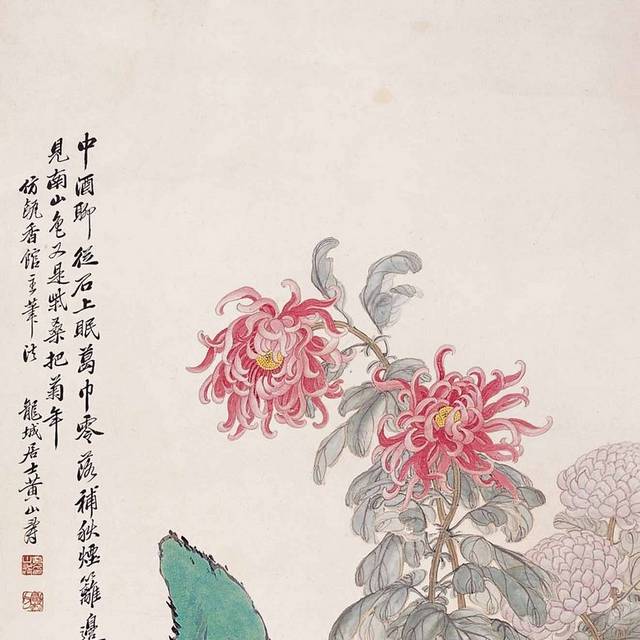 中酒聊從石上眠葛巾零落補秋煙籬邊
見南山色又是柴桑把菊年
仿甌香館主筆法
龍城居士黃山壽